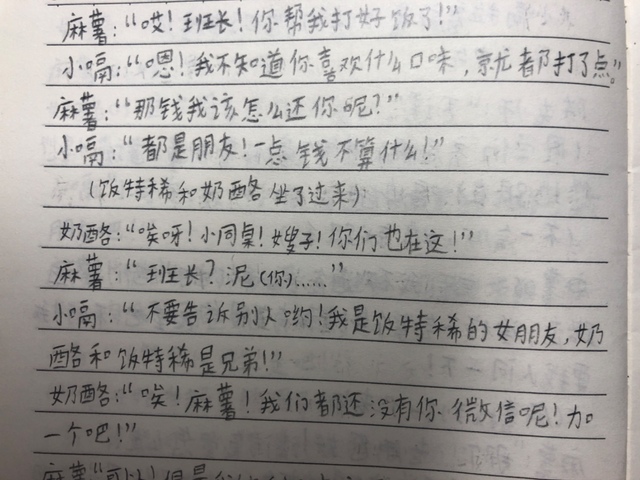 麻薯:“哎!班长!你帮我打好饭了!”
小嗝:“嗯!我不知道你喜欢什么口味,就都打了点。”
麻薯:“那钱我该怎么还你呢?”
小嗝:“都是朋友!一点钱不算什么!”
(饭特稀和奶酪坐了过来)
奶酪:“唉呀!小同桌!嫂子!你们也在这!”
麻薯:“班长?泥(你)……”
小嗝:“不要告诉别人哟!我是饭特稀的女朋友,奶
酪和饭特稀是兄弟!”
奶酪:“唉!麻薯!我们都还没有你微信呢!加
一个吧!”
麻薯“可以!但是